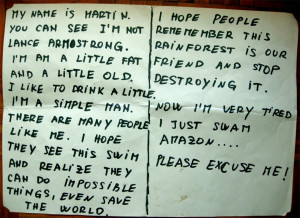 MY NAME IS MARTIN.
YOU CAN SEE I'M NOT
LANCE ARMSTRONG.
I'M AM A LITTLE FAT
AND A LITTLE OLD.
I LIKE TO DRINK A LITTLE.
I'M A SIMPLE MAN.
THERE ARE MANY PEOPLE
LIKE ME. I HOPE
THEY SEE THIS SWIM
AND REALIZE THEY
CAN DO IMPOSSIBLE
THINGS, EVEN SAVE
THE WORLD.
I HOPE PEOPLE
REMEMEMBER THIS
RAINFOREST IS OUR
FRIEND AND STOP
DESTROYING IT.
NOW I'M VERY TIRED
I JUST SWAM
AMAZON....
PLEASE EXCUSE ME!